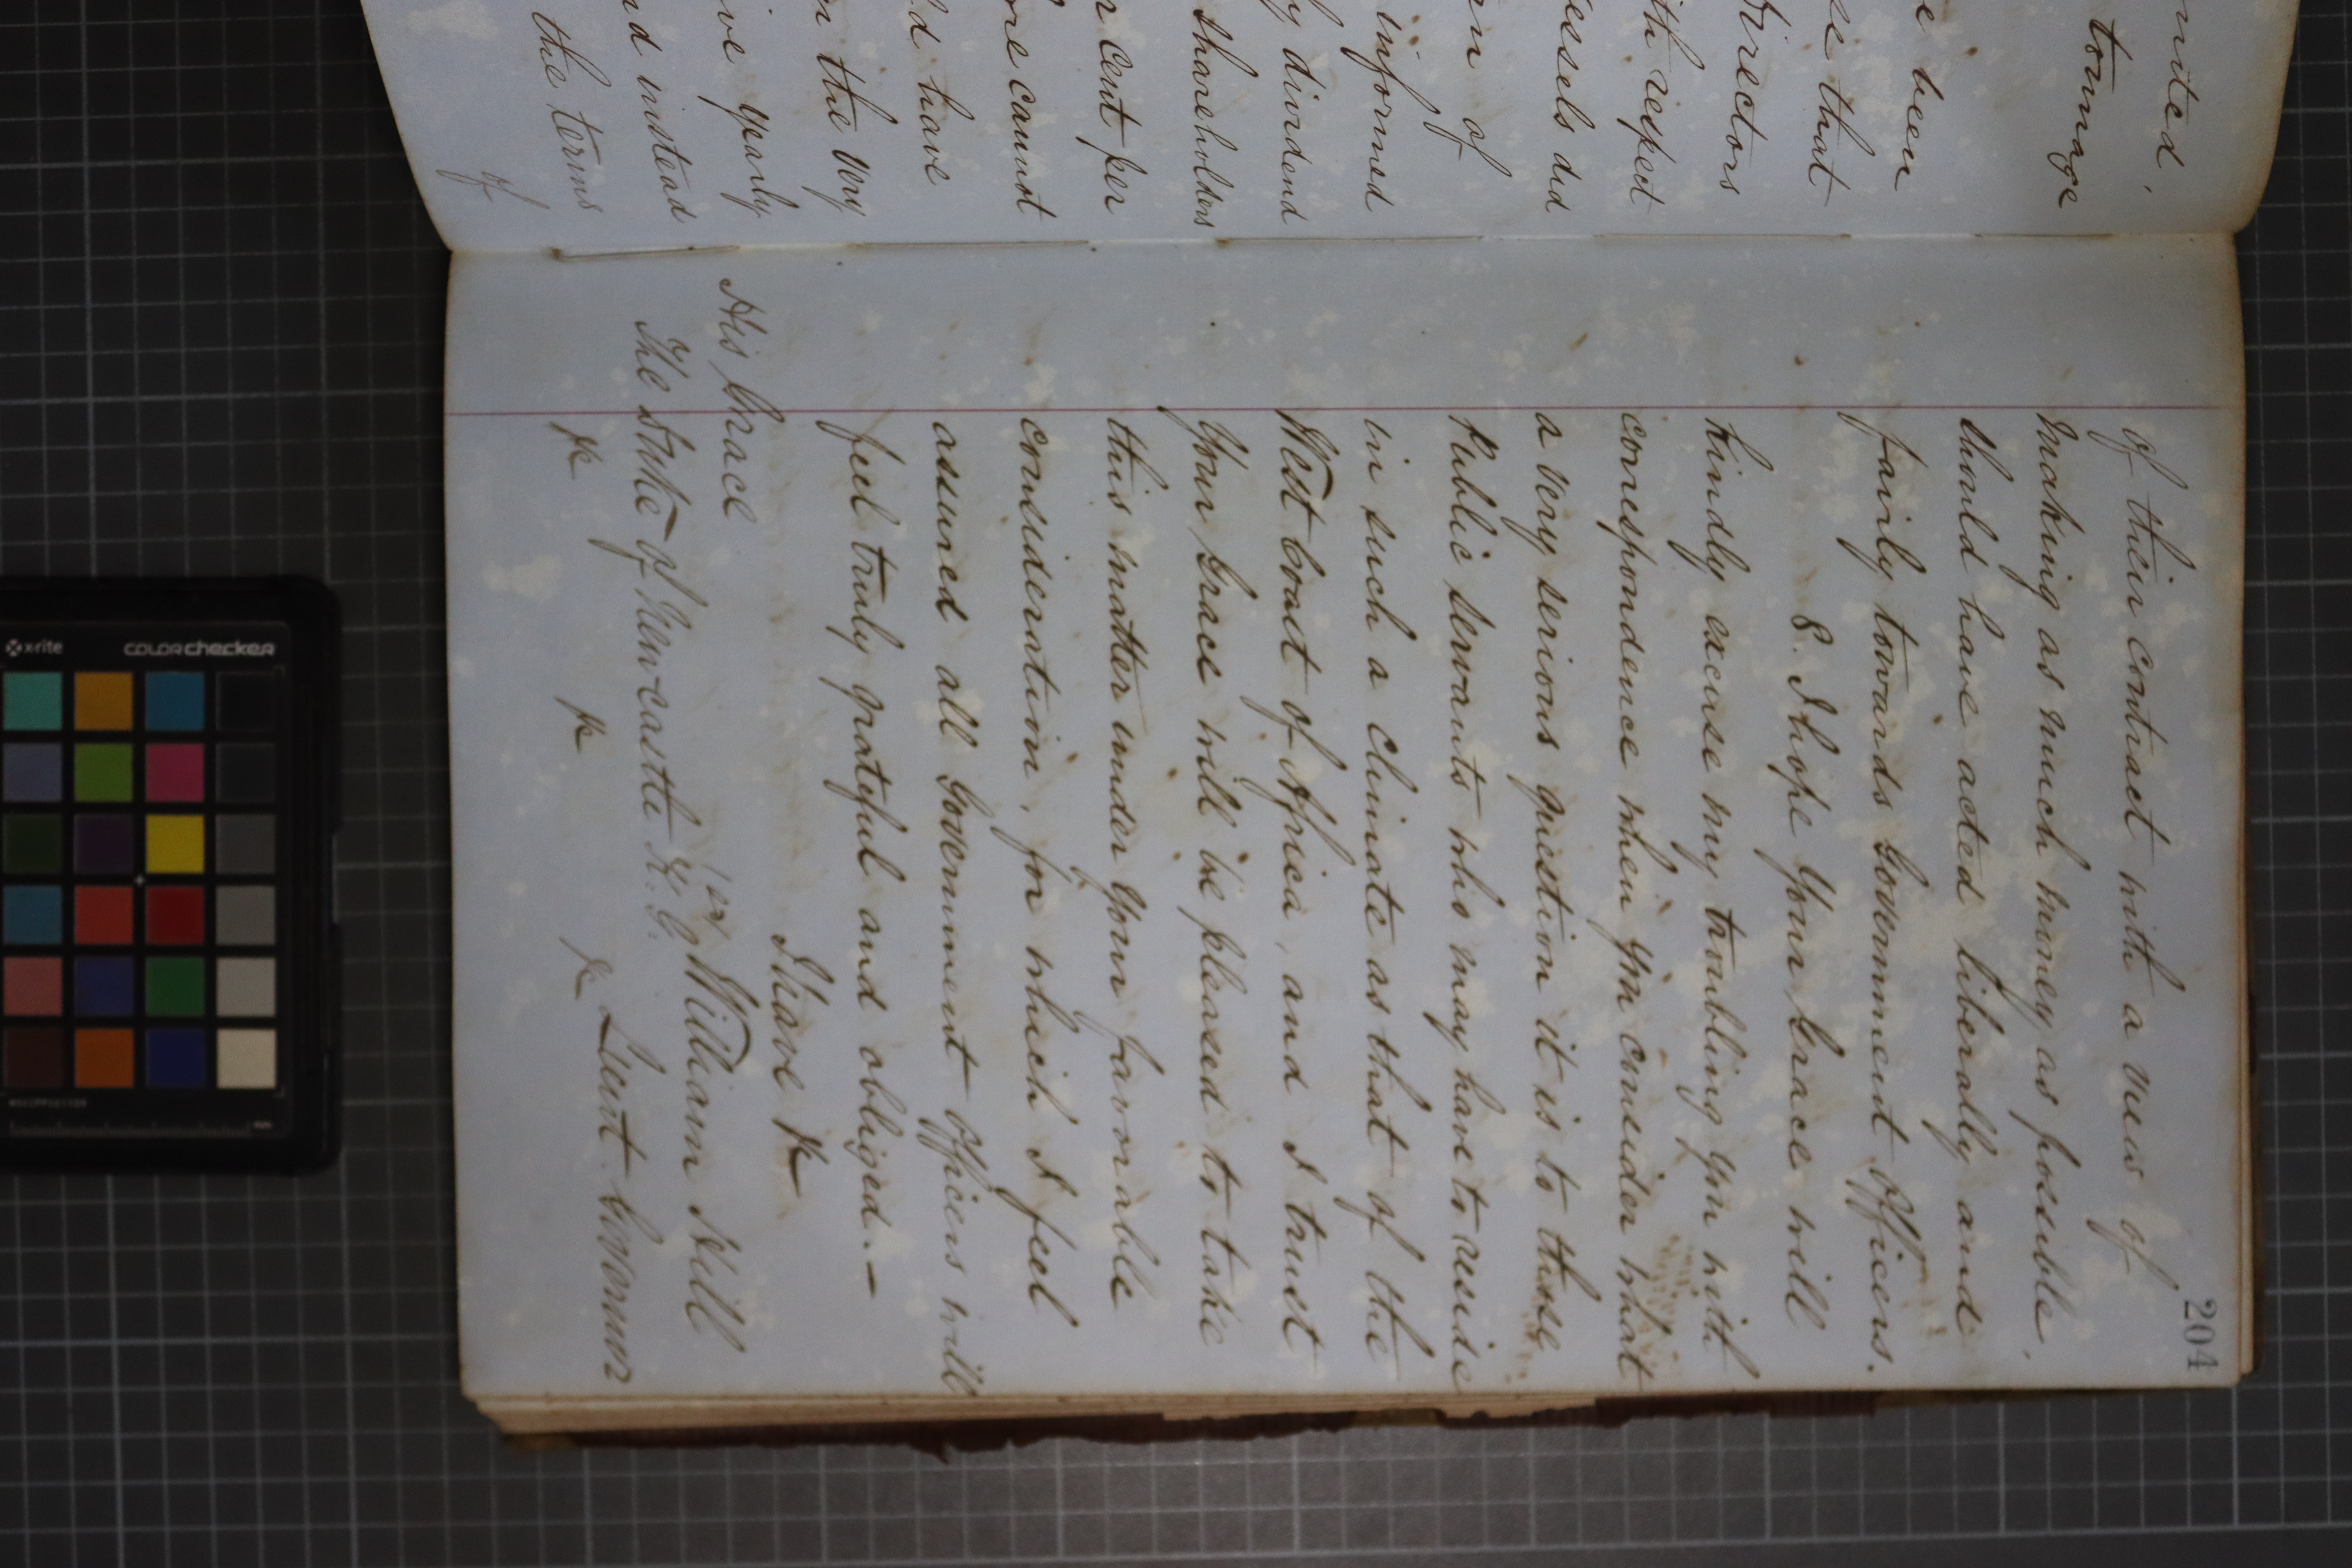 mited.
tonnage
e been
se that
Directors
ith respect
essels did
n of
informed
y dividend
shareholders
r cent per
one cannot
ld have
n the very
ive yearly
nd instead
the terms
of
204
of their contract with a view of
making as much money as possible,
should have acted liberally and
fairly towards Government Officers.
8. I hope Your Grace will
kindly excuse my troubling you with
correspondence when you consider what
a very serious question it is to those
Public Servants who may have to reside
in such a climate as that of the
West Coast of Africa, and I trust
Your Grace will be pleased to take
this matter under your favorable
consideration, for which I feel
assured all Government Officers will
feel truly grateful and obliged.—
I have &c
William Hill
Lieut. Governor
His Grace
The Duke of Newcastle K.G.
&c &c &c
x-rite
colorchecker